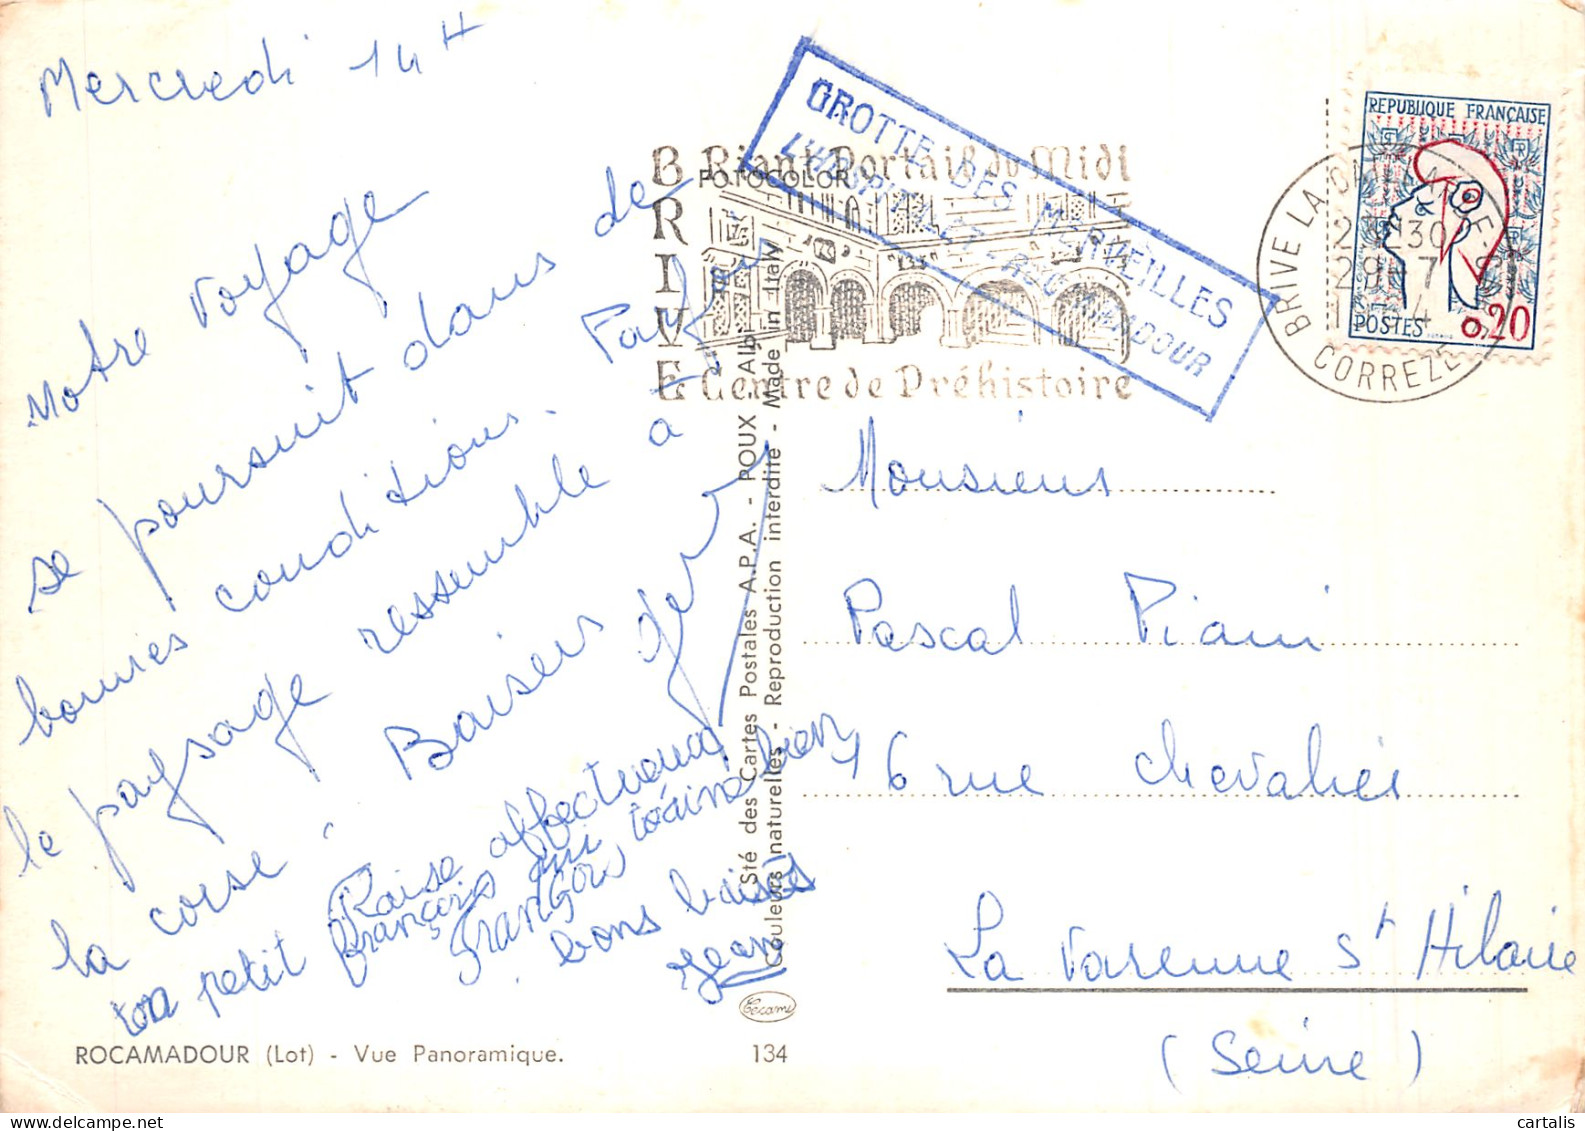 Mercredi 14H
Notre voyage
se poursuit dans de
bonnes conditions.
le paysage ressemble à
la corse.
Baisers
Baise affectueux
ton petit françois qui t'aime bien
François
bons baisers
Jean
ROCAMADOUR (Lot) - Vue Panoramique.
134
Sté des Cartes Postales A.P.A. - POUX - Albi
Couleurs naturelles - Reproduction interdite - Made in Italy
Cécami
FOTOCOLOR
BRIVE
Riant Portail du Midi
Centre de Préhistoire
GROTTE DES MERVEILLES
L'HOSPITALET - ROCAMADOUR
REPUBLIQUE FRANÇAISE
POSTES
0,20
BRIVE LA GAILLARDE
30
29-7
CORREZE
Monsieur
Pascal Piani
16 rue Chevalier
La Varenne St Hilaire
(Seine)
cartalis